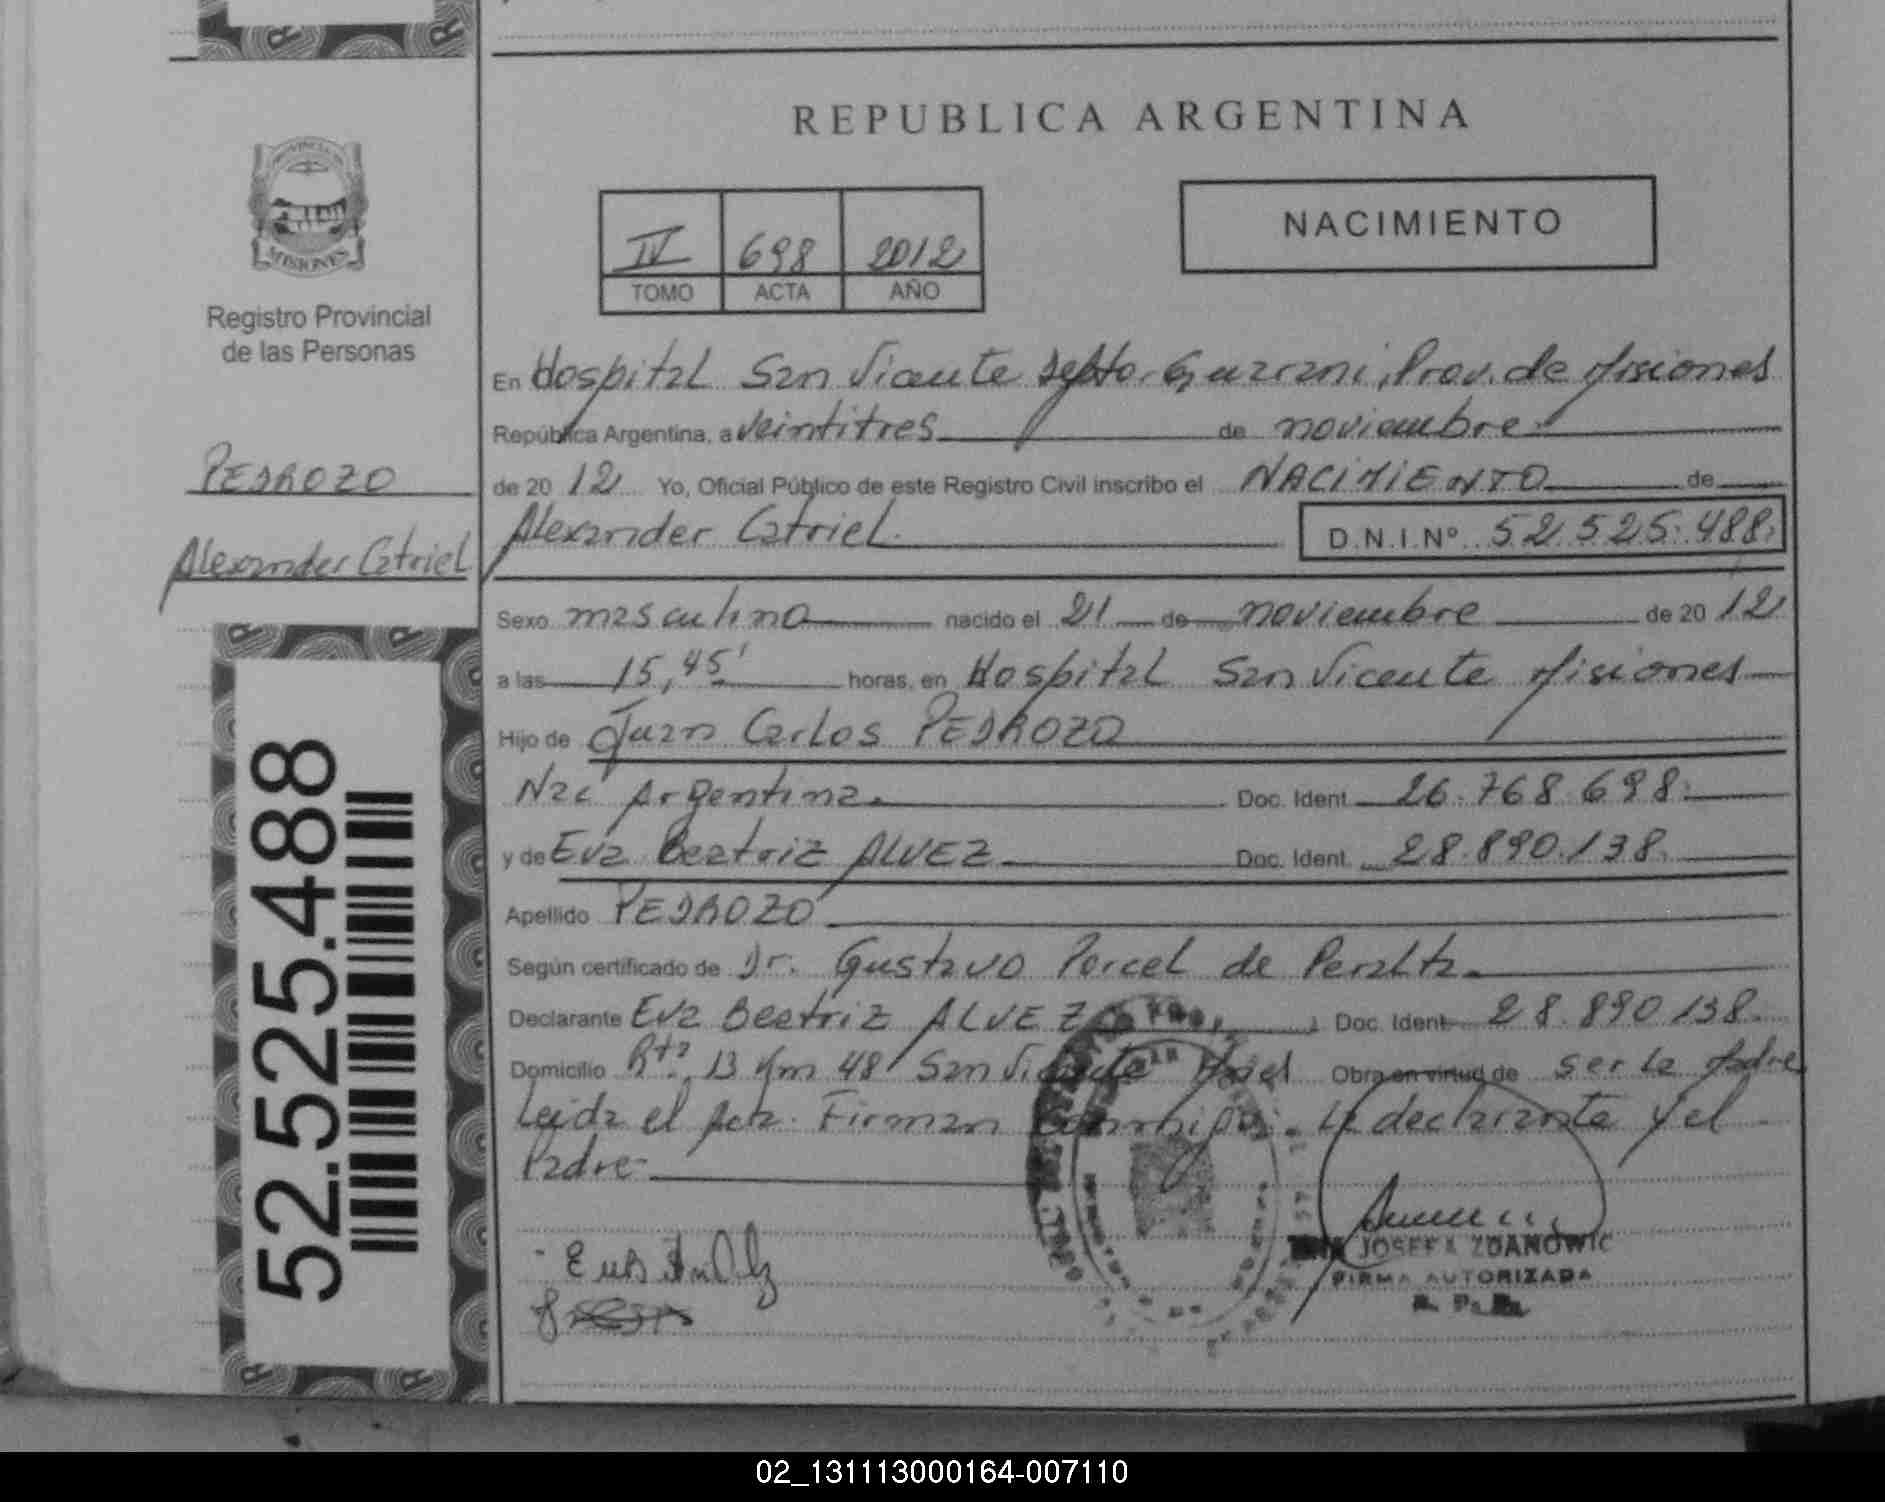 REPUBLICA ARGENTINA
NACIMIENTO
IV 698 2012
TOMO ACTA AÑO
PROVINCIA DE
MISIONES
Registro Provincial
de las Personas
PEDROZO
Alexander Catriel
52.525.488
En Hospital San Vicente Depto. Guarani, Prov. de Misiones
República Argentina, a veintitres de noviembre
de 2012 Yo, Oficial Público de este Registro Civil inscribo el NACIMIENTO de
Alexander Catriel. D.N.I.Nº 52.525.488.
Sexo masculino nacido el 21 de noviembre de 2012
a las 15,45' horas, en Hospital San Vicente Misiones
Hijo de Juan Carlos PEDROZO
Nac Argentina. Doc. Ident. 26.768.698.
y de Eva Beatriz ALVEZ Doc. Ident. 28.890.138.
Apellido PEDROZO
Según certificado de Dr. Gustavo Porcel de Peralta
Declarante Eva Beatriz ALVEZ Doc. Ident. 28.890.138.
Domicilio Rta. 13 Km 48 San Vicente Obra en virtud de ser la Madre
Leida el Acta. Firman conmigo: La declarante y el
Padre-
JOSEFA ZDANOWIC
FIRMA AUTORIZADA
02_131113000164-007110